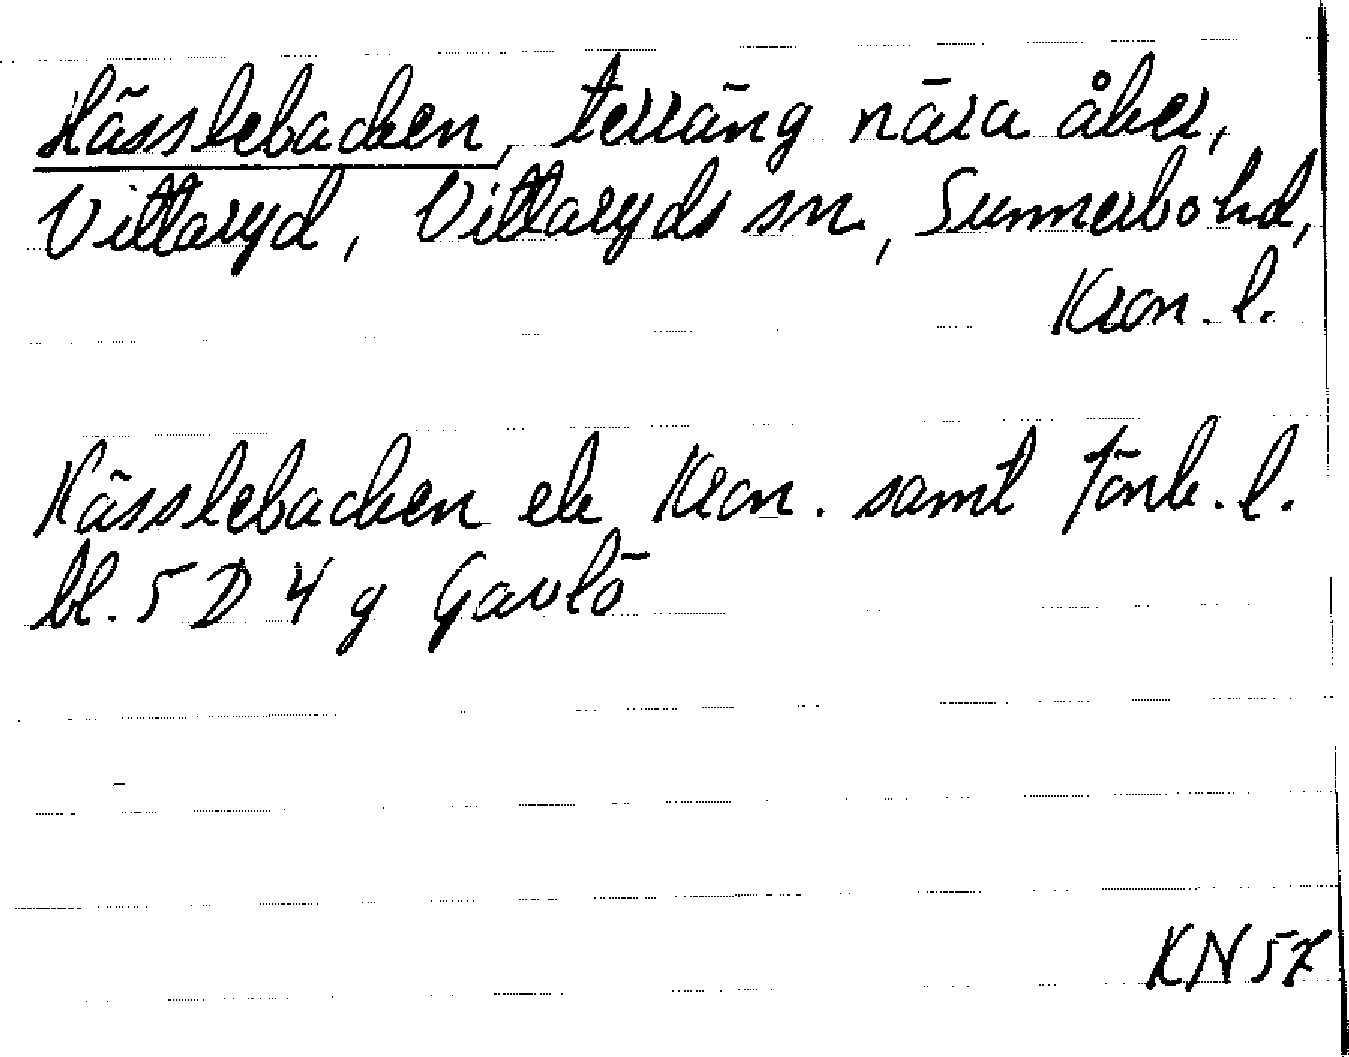 Hässlebacken, terräng nära åker,
Vittaryd, Vittaryds sn, Sunnerbo hd,
Kron. l.
Hässlebacken ek Kron. samt Jönk. l.
bl. 5 D 4 g Gavlö
KN 57